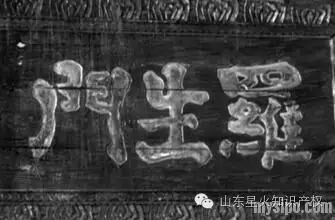 羅生門
山东星火知识产权
mysipo.com